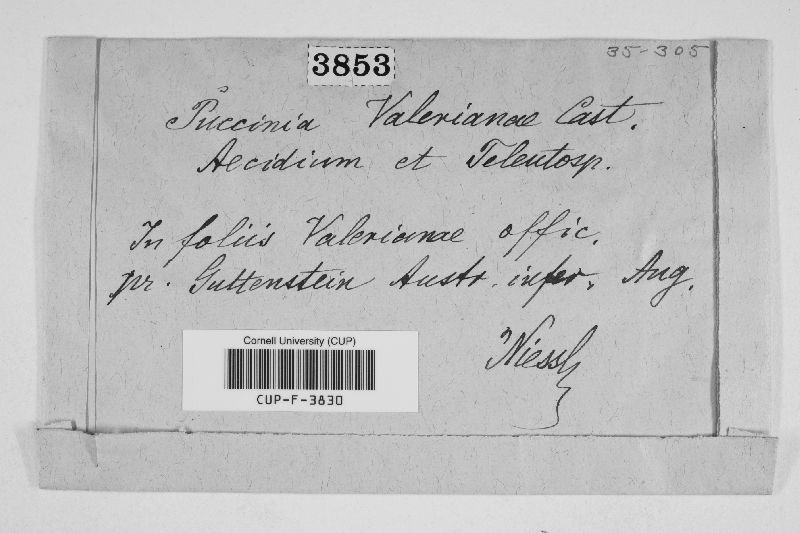 35-305
3853
Puccinia Valerianae Cast.
Aecidium et Teleutosp.
In foliis Valerianae offic.
pr. Guttenstein Austr. infer. Aug.
Niessl
Cornell University (CUP)
CUP-F-3830